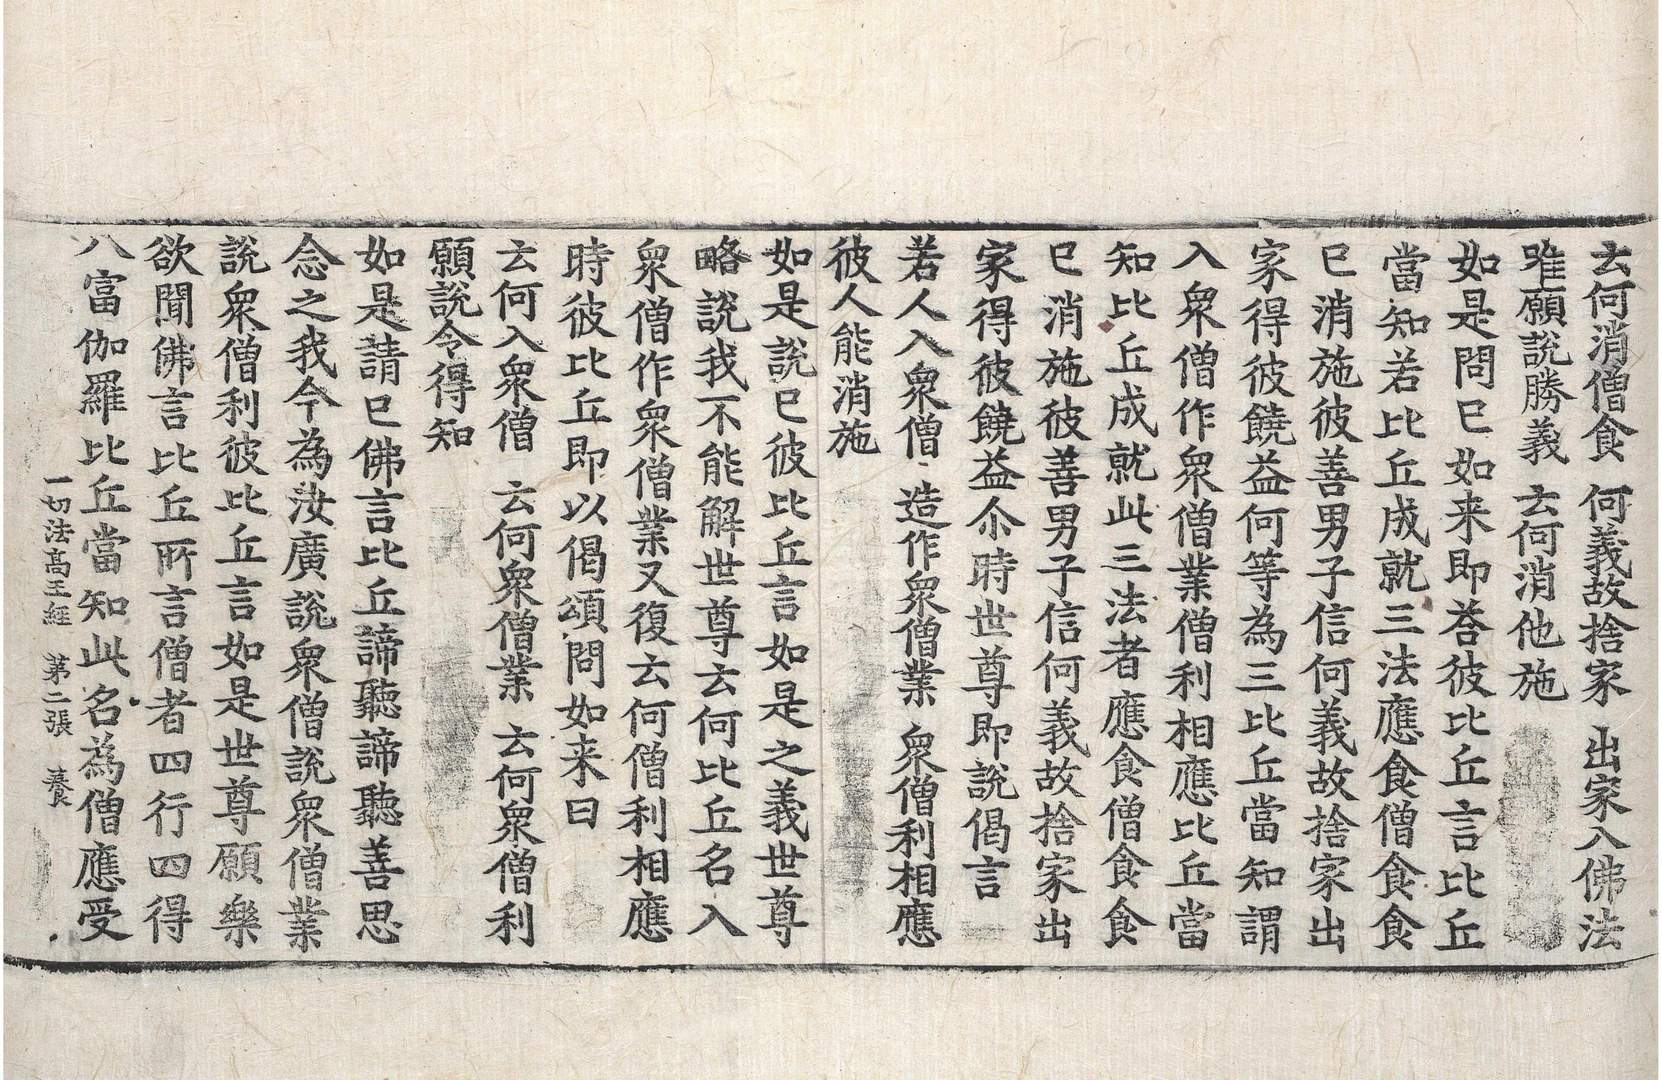 云何消僧食　何義故捨家　出家入佛法
唯願說勝義　云何消他施
如是問已如来即荅彼比丘言比丘
當知若比丘成就三法應食僧食食
已消施彼善男子信何義故捨家出
家得彼饒益何等為三比丘當知謂
入衆僧作衆僧業僧利相應比丘當
知比丘成就此三法者應食僧食食
已消施彼善男子信何義故捨家出
家得彼饒益尒時世尊即說偈言
若人入衆僧　造作衆僧業　衆僧利相應
彼人能消施
如是說已彼比丘言如是之義世尊
略說我不能解世尊云何比丘名入
衆僧作衆僧業又復云何僧利相應
時彼比丘即以偈頌問如来曰
云何入衆僧　云何衆僧業　云何衆僧利
願說令得知
如是請已佛言比丘諦聽諦聽善思
念之我今為汝廣說衆僧說衆僧業
說衆僧利彼比丘言如是世尊願樂
欲聞佛言比丘所言僧者四行四得
八富伽羅比丘當知此名為僧應受
一切法高王經　第二張　養